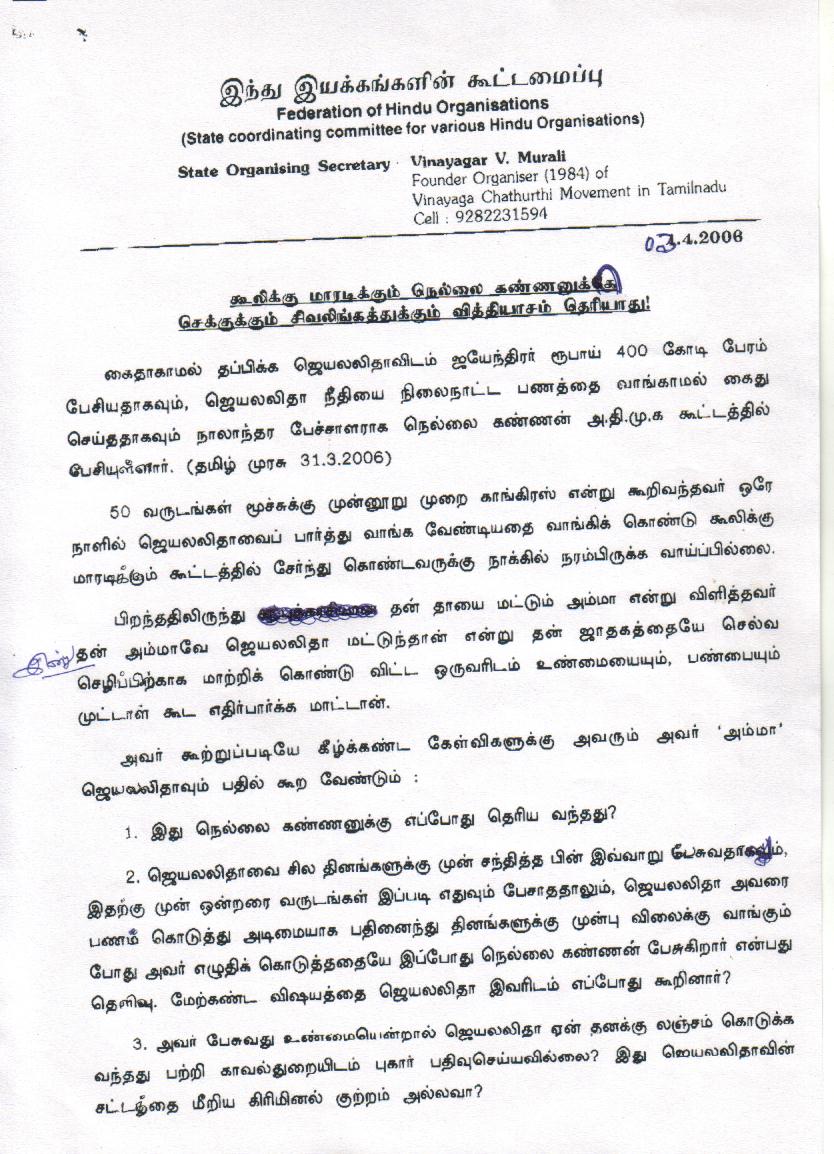 இந்து இயக்கங்களின் கூட்டமைப்பு
Federation of Hindu Organisations
(State coordinating committee for various Hindu Organisations)
State Organising Secretary : Vinayagar V. Murali
Founder Organiser (1984) of
Vinayaga Chathurthi Movement in Tamilnadu
Cell : 9282231594
03.4.2006
கூலிக்கு மாரடிக்கும் நெல்லை கண்ணனுக்கு
செக்குக்கும் சிவலிங்கத்துக்கும் வித்தியாசம் தெரியாது!
கைதாகாமல் தப்பிக்க ஜெயலலிதாவிடம் ஜயேந்திரர் ரூபாய் 400 கோடி பேரம்
பேசியதாகவும், ஜெயலலிதா நீதியை நிலைநாட்ட பணத்தை வாங்காமல் கைது
செய்ததாகவும் நாலாந்தர பேச்சாளராக நெல்லை கண்ணன் அ.தி.மு.க கூட்டத்தில்
பேசியுள்ளார். (தமிழ் முரசு 31.3.2006)
50 வருடங்கள் மூச்சுக்கு முன்னூறு முறை காங்கிரஸ் என்று கூறிவந்தவர் ஒரே
நாளில் ஜெயலலிதாவைப் பார்த்து வாங்க வேண்டியதை வாங்கிக் கொண்டு கூலிக்கு
மாரடிக்கும் கூட்டத்தில் சேர்ந்து கொண்டவருக்கு நாக்கில் நரம்பிருக்க வாய்ப்பில்லை.
பிறந்ததிலிருந்து தன் தாயை மட்டும் அம்மா என்று விளித்தவர்
இன்று தன் அம்மாவே ஜெயலலிதா மட்டுந்தான் என்று தன் ஜாதகத்தையே செல்வ
செழிப்பிற்காக மாற்றிக் கொண்டு விட்ட ஒருவரிடம் உண்மையையும், பண்பையும்
முட்டாள் கூட எதிர்பார்க்க மாட்டான்.
அவர் கூற்றுப்படியே கீழ்க்கண்ட கேள்விகளுக்கு அவரும் அவர் 'அம்மா'
ஜெயலலிதாவும் பதில் கூற வேண்டும் :
1. இது நெல்லை கண்ணனுக்கு எப்போது தெரிய வந்தது?
2. ஜெயலலிதாவை சில தினங்களுக்கு முன் சந்தித்த பின் இவ்வாறு பேசுவதாலும்,
இதற்கு முன் ஒன்றரை வருடங்கள் இப்படி எதுவும் பேசாததாலும், ஜெயலலிதா அவரை
பணம் கொடுத்து அடிமையாக பதினைந்து தினங்களுக்கு முன்பு விலைக்கு வாங்கும்
போது அவர் எழுதிக் கொடுத்ததையே இப்போது நெல்லை கண்ணன் பேசுகிறார் என்பது
தெளிவு. மேற்கண்ட விஷயத்தை ஜெயலலிதா இவரிடம் எப்போது கூறினார்?
3. அவர் பேசுவது உண்மையென்றால் ஜெயலலிதா ஏன் தனக்கு லஞ்சம் கொடுக்க
வந்தது பற்றி காவல்துறையிடம் புகார் பதிவுசெய்யவில்லை? இது ஜெயலலிதாவின்
சட்டத்தை மீறிய கிரிமினல் குற்றம் அல்லவா?